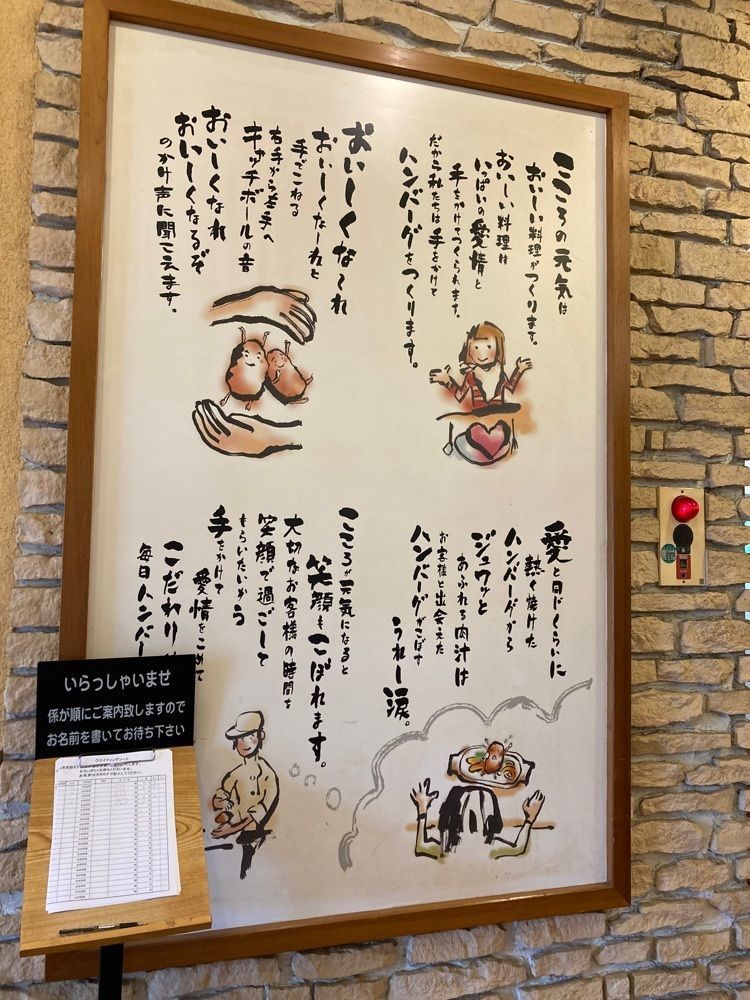 こころの元気は
おいしい料理がつくります。
おいしい料理は
いっぱいの愛情と
手をかけてつくられます。
だから私たちは手をかけて
ハンバーグをつくります。
おいしくな〜れ
おいしくな〜れと
手でこねる
右手から左手へ
キャッチボールの音
おいしくなれ
おいしくなるぞ
のかけ声に聞こえます。
愛と同じくらいに
熱く焼けた
ハンバーグから
ジュワッと
あふれる肉汁は
お客様と出会えた
ハンバーグがこぼす
うれしー涙。
こころが元気になると
笑顔もこぼれます。
大切なお客様の時間を
笑顔で過ごして
もらいたいから
手をかけて
愛情をこめて
こだわり
毎日ハンバー
いらっしゃいませ
係が順にご案内致しますので
お名前を書いてお待ち下さい
ウエイティングシート